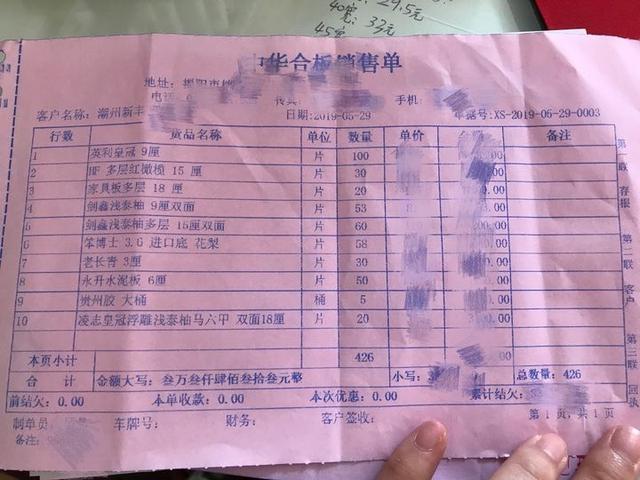 29.5元
40度
宽: 33元
45度
华合板销售单
地址: 揭阳市
电话:
传真
手机:
客户名称: 潮州新丰
日期:2019-05-29
单据号:XS-2019-05-29-0003
行数 货品名称 单位 数量 单价 金额 备注
1 英利皇冠 9厘 片 100
2 HF 多层红橄榄 15 厘 片 30
3 家具板多层 18 厘 片 20
4 剑鑫浅泰柚 9厘双面 片 53
5 剑鑫浅泰柚多层 15厘双面 片 60
6 笨博士 3.6 进口底 花梨 片 58
7 老长青 3厘 片 30
8 永升水泥板 6厘 片 50
9 贵州胶 大桶 桶 5
10 凌志皇冠浮雕浅泰柚马六甲 双面18厘 片 20
本页小计 426
合 计 金额大写: 叁万叁仟肆佰叁拾叁元整 小写: 总数量: 426
前结欠: 0.00 本单收款: 0.00 本次优惠: 0.00 累计结欠:
制单员: 车牌号: 财务: 客户签收: 第 1 页, 共 1 页
备注:
第一联 存根
第二联 客户
第三联 回执